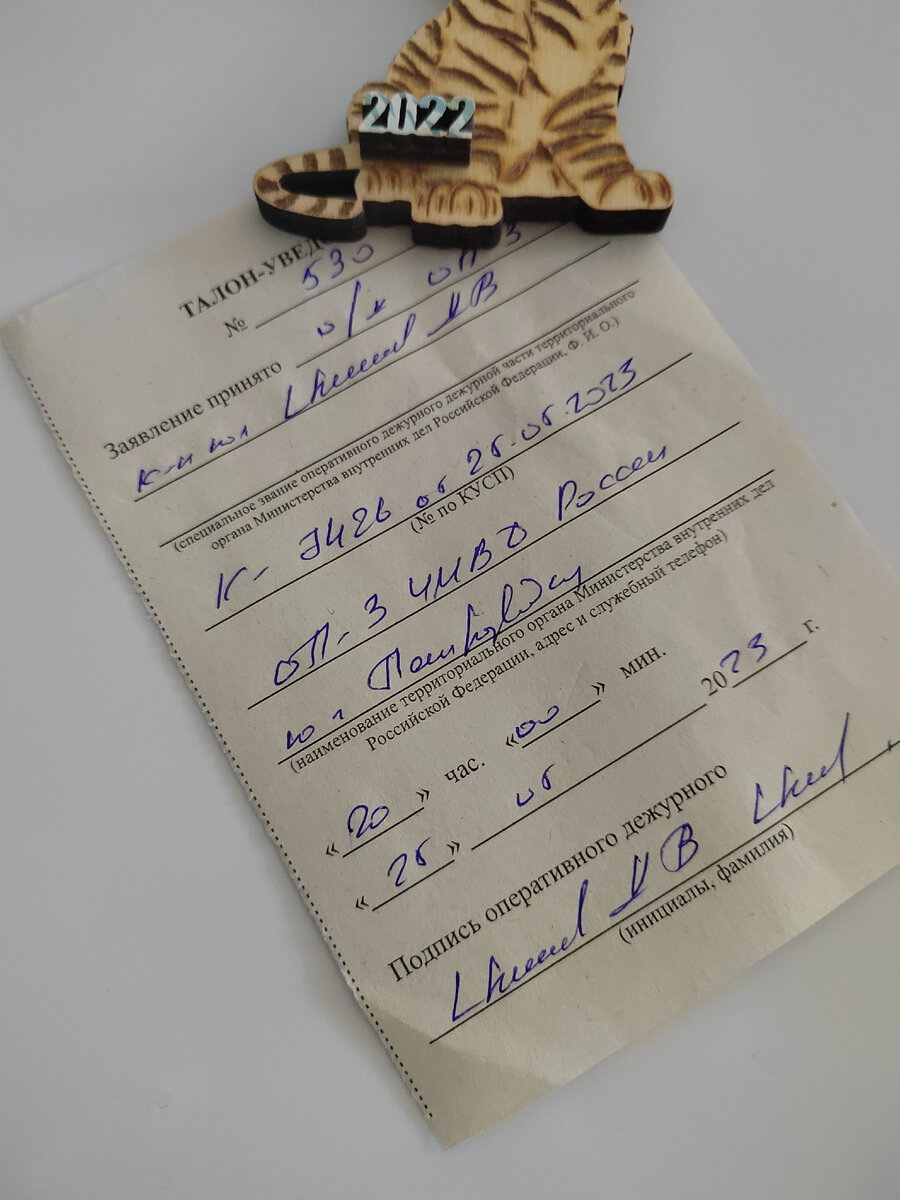 2022
ТАЛОН-УВЕД
№ 530
о/д ОП 3
Заявление принято
к-н пол И В
(специальное звание оперативного дежурного дежурной части территориального
органа Министерства внутренних дел Российской Федерации, Ф. И. О.)
К- 7426 от 25.05.2023
(№ по КУСП)
ОП-3 УМВД России
по г
(наименование территориального органа Министерства внутренних дел
Российской Федерации, адрес и служебный телефон)
« 20 » час. « 00 » мин.
« 25 » 05 2023 г.
Подпись оперативного дежурного
И В
(инициалы, фамилия)